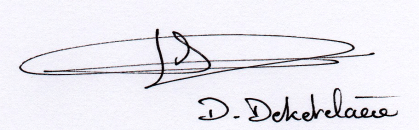 D. Dekekelaere